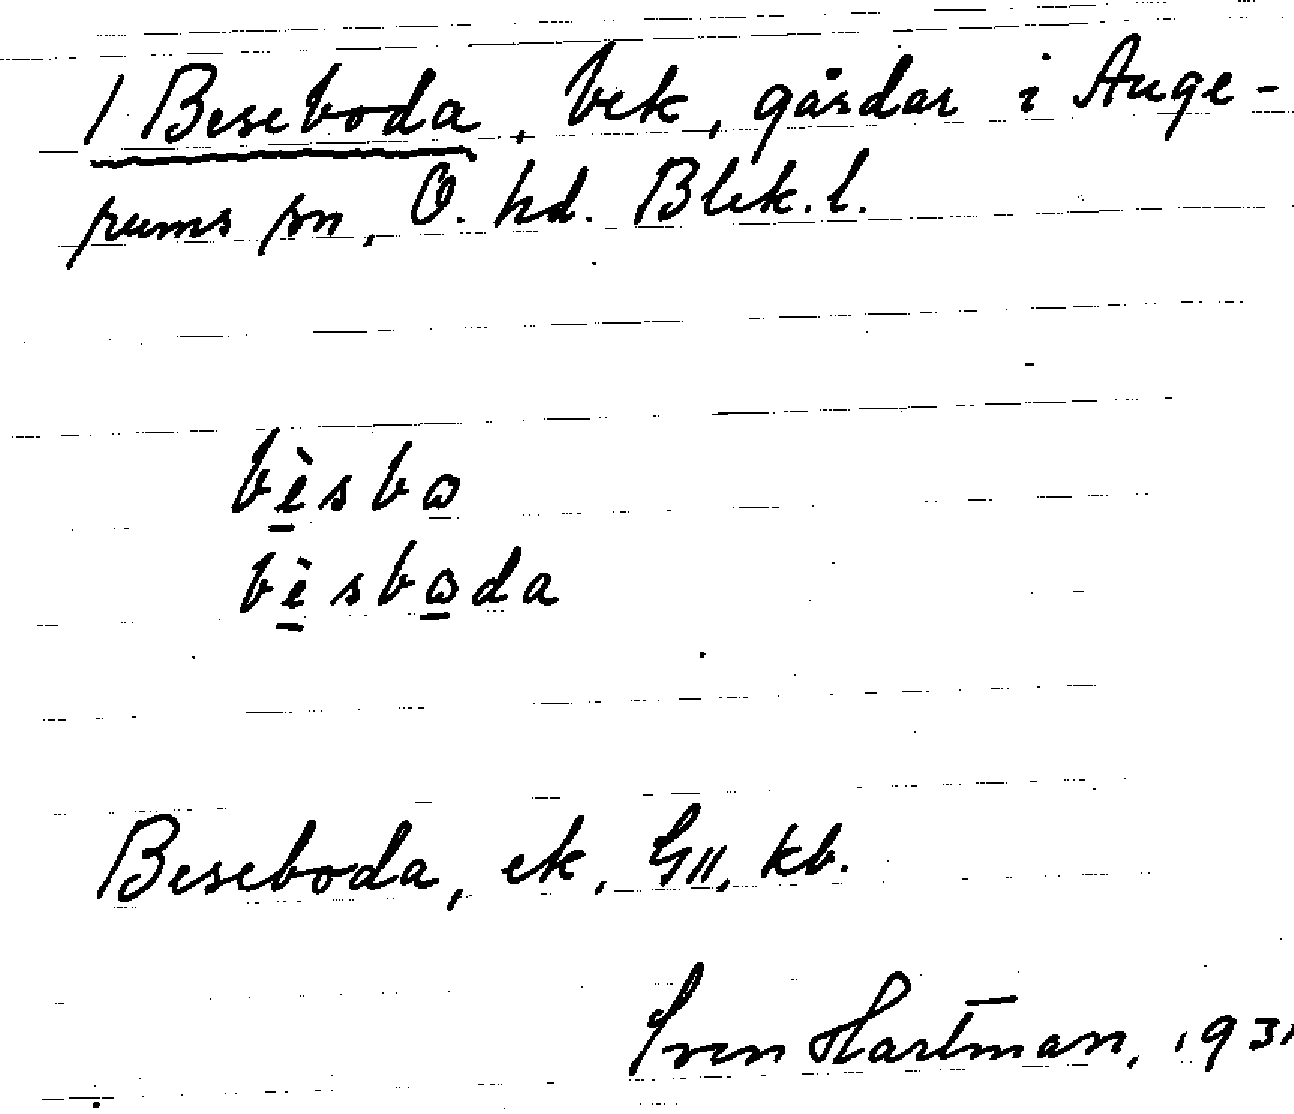 1 Beseboda, bek, gårdar i Auge-
rums sn, Ö. hd. Blek. l.
bèsbω
bèsbωda
Beseboda, ek, GII, kb.
Sven Hartman, 1931